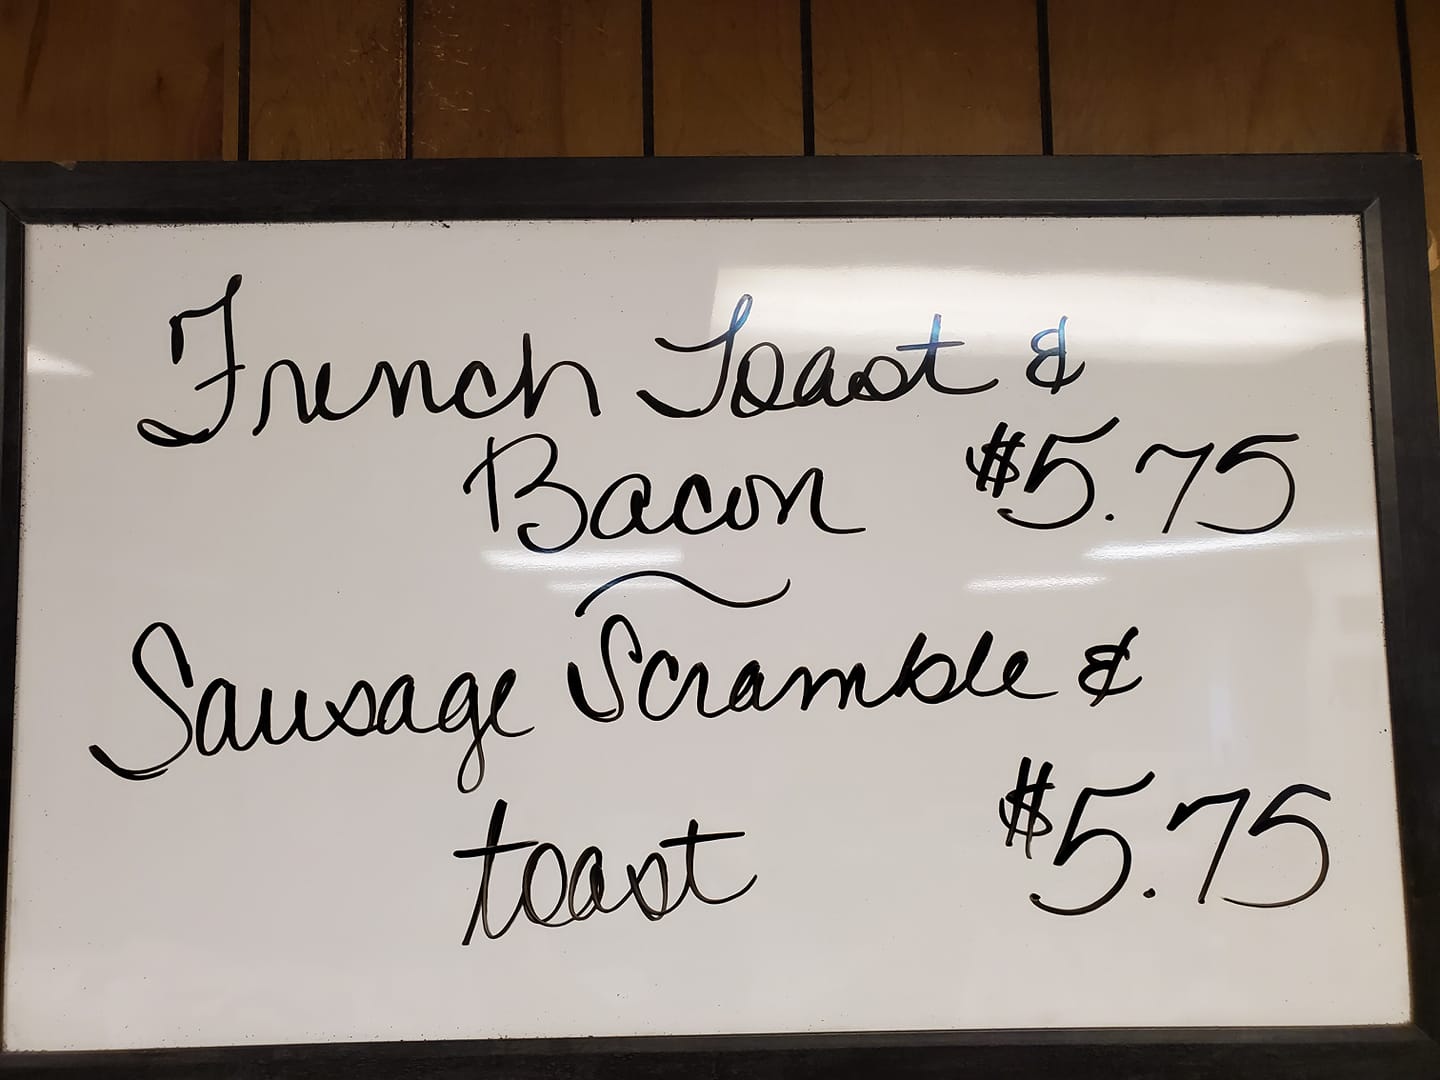 French Toast &
Bacon $5.75
~
Sausage Scramble &
toast $5.75